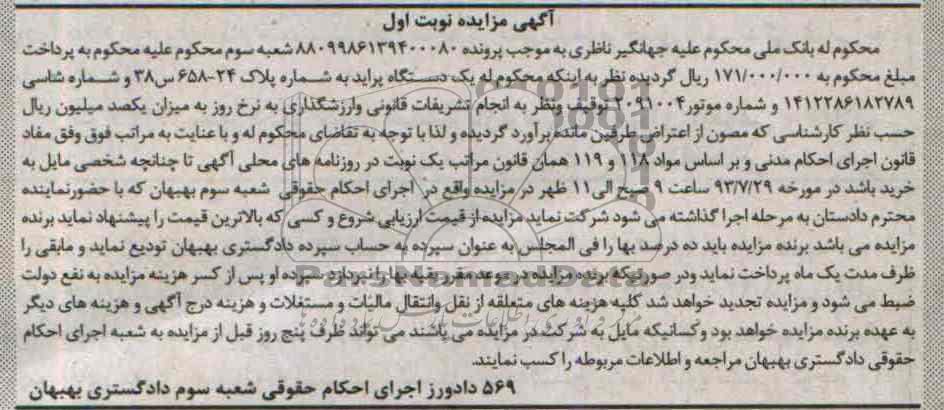 آگهی مزایده نوبت اول
محکوم له بانک ملی محکوم علیه جهانگیر ناظری به موجب پرونده ۸۸۰۹۹۸۶۱۳۹۴۰۰۰۸۰ شعبه سوم محکوم علیه محکوم به پرداخت
مبلغ محکوم به ۱۷۱/۰۰۰/۰۰۰ ریال گردیده نظر به اینکه محکوم له یک دستگاه پراید به شماره پلاک ۲۴-۶۵۸ س۳۸ و شماره شاسی
۱۴۱۲۲۸۶۱۸۲۷۸۹ و شماره موتور ۲۰۹۱۰۰۴ توقیف ونظر به انجام تشریفات قانونی وارزشگذاری به نرخ روز به میزان یکصد میلیون ریال
حسب نظر کارشناسی که مصون از اعتراض طرفین مانده برآورد گردیده و لذا با توجه به تقاضای محکوم له و با عنایت به مراتب فوق وفق مفاد
قانون اجرای احکام مدنی و بر اساس مواد ۱۱۸ و ۱۱۹ همان قانون مراتب یک نوبت در روزنامه های محلی آگهی تا چنانچه شخصی مایل به
خرید باشد در مورخه ۹۳/۷/۲۹ ساعت ۹ صبح الی ۱۱ ظهر در مزایده واقع در اجرای احکام حقوقی شعبه سوم بهبهان که با حضورنماینده
محترم دادستان به مرحله اجرا گذاشته می شود شرکت نماید مزایده از قیمت ارزیابی شروع و کسی که بالاترین قیمت را پیشنهاد نماید برنده
مزایده می باشد برنده مزایده باید ده درصد بها را فی المجلس به عنوان سپرده به حساب سپرده دادگستری بهبهان تودیع نماید و مابقی را
ظرف مدت یک ماه پرداخت نماید ودر صورتیکه برنده مزایده در موعد مقرر بقیه بها را نپردازد سپرده او پس از کسر هزینه مزایده به نفع دولت
ضبط می شود و مزایده تجدید خواهد شد کلیه هزینه های متعلقه از نقل وانتقال مالیات و مستغلات و هزینه درج آگهی و هزینه های دیگر
به عهده برنده مزایده خواهد بود وکسانیکه مایل به شرکت در مزایده می باشند می تواند ظرف پنج روز قبل از مزایده به شعبه اجرای احکام
حقوقی دادگستری بهبهان مراجعه و اطلاعات مربوطه را کسب نمایند.
۵۶۹ دادورز اجرای احکام حقوقی شعبه سوم دادگستری بهبهان
ParsNamadData